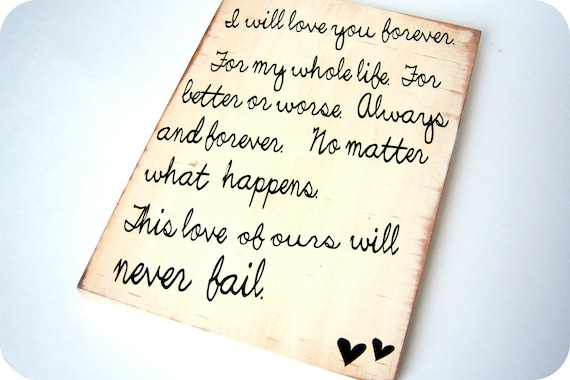 I will love you forever.
For my whole life. For
better or worse. Always
and forever. No matter
what happens.
This love of ours will
never fail.